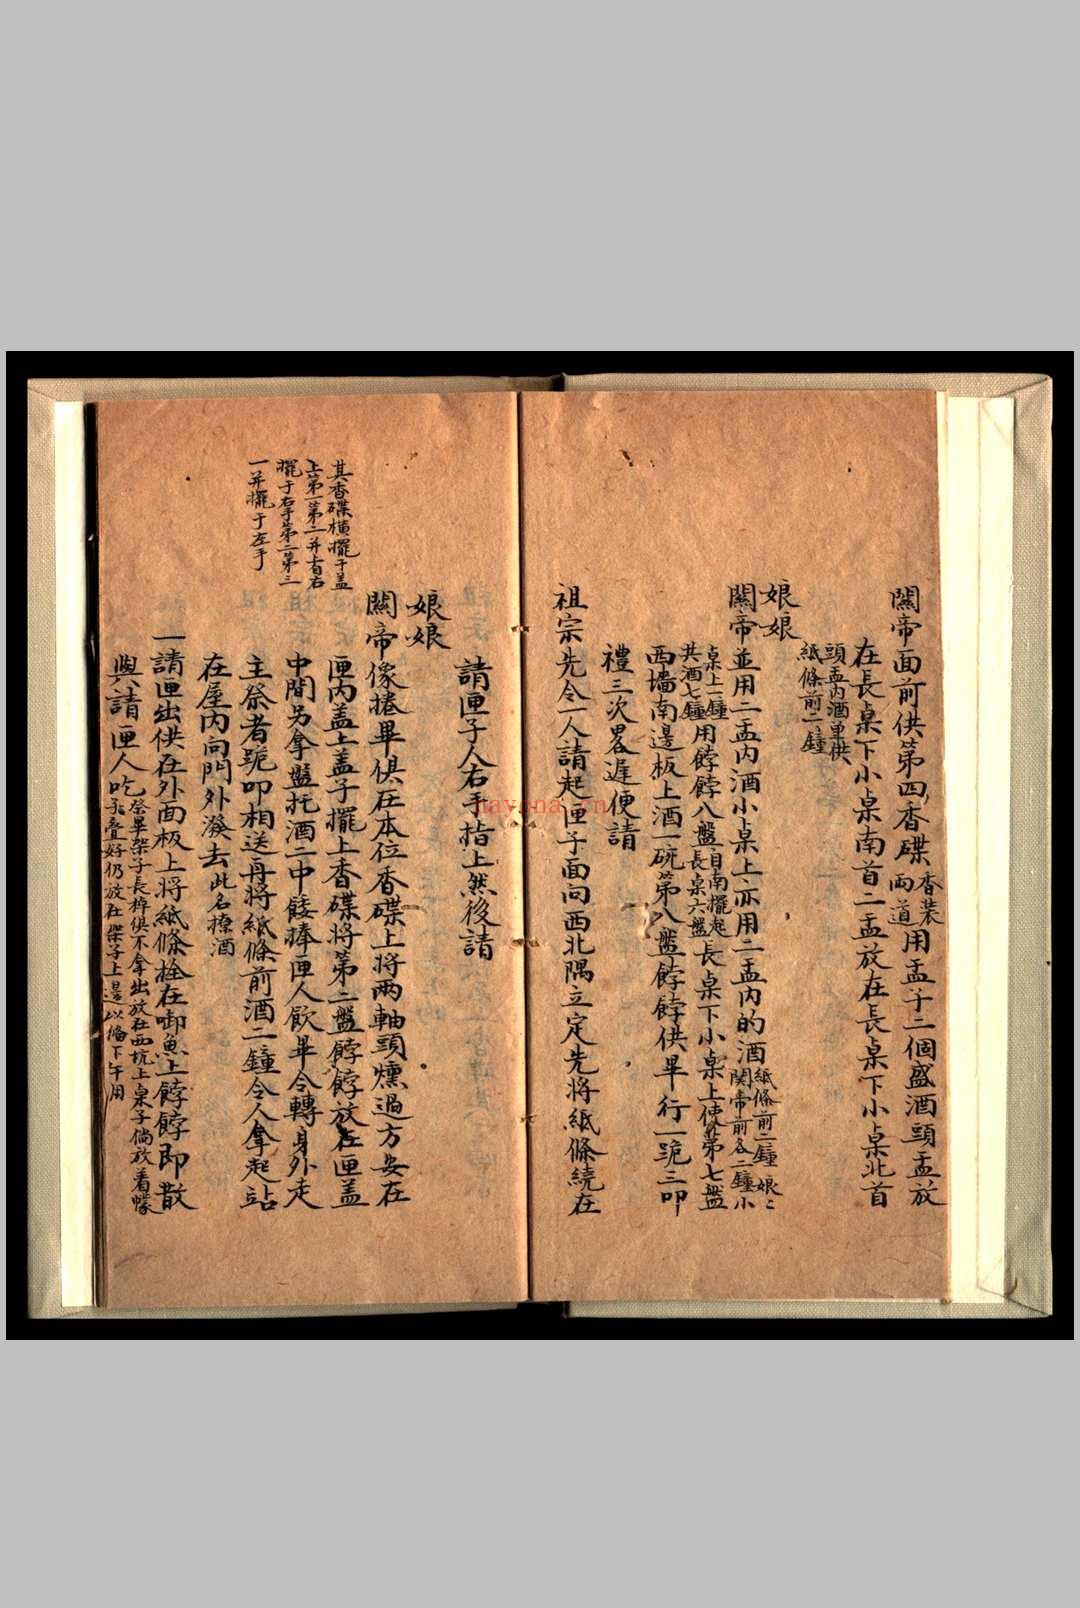 關帝面前供第四香碟香裝兩道用盂子二個盛酒頭盂放
在長桌下小桌南首二盂放在長桌下小桌北首
頭盂內酒單供
紙條前二鐘
娘娘
關帝並用二盂內酒小桌上亦用二盂內的酒紙條前二鐘娘々關帝前各二鐘小
桌上一鐘共酒七鐘用餑餑八盤自南擺起長桌六盤長桌下小桌上使第七盤
西墻南邊板上酒一碗第八盤餑餑供畢行一跪三叩
禮三次畧遲便請
祖宗先令一人請起匣子面向西北隅立定先將紙條繞在
請匣子人右手指上然後請
娘娘
關帝像捲畢俱在本位香碟上將兩軸頭燻過方安在
匣內盖上盖子擺上香碟將第二盤餑餑放在匣盖
中間另拿盤托酒二中餧捧匣人飲畢令轉身外走
主祭者跪叩相送再將紙條前酒二鐘令人拿起站
在屋內向門外潑去此名撩酒
一請匣出供在外面板上將紙條栓在啣魚上餑餑即散
與請匣人吃祭畢架子長桿俱不拿出放在西炕上桌子倘放着幪
子叠好仍放在架子上邊以偹下午用
其香碟橫擺于盖
上第一第二并㫖右
擺于右手第二第三
一并擺于左手
hayona.cn